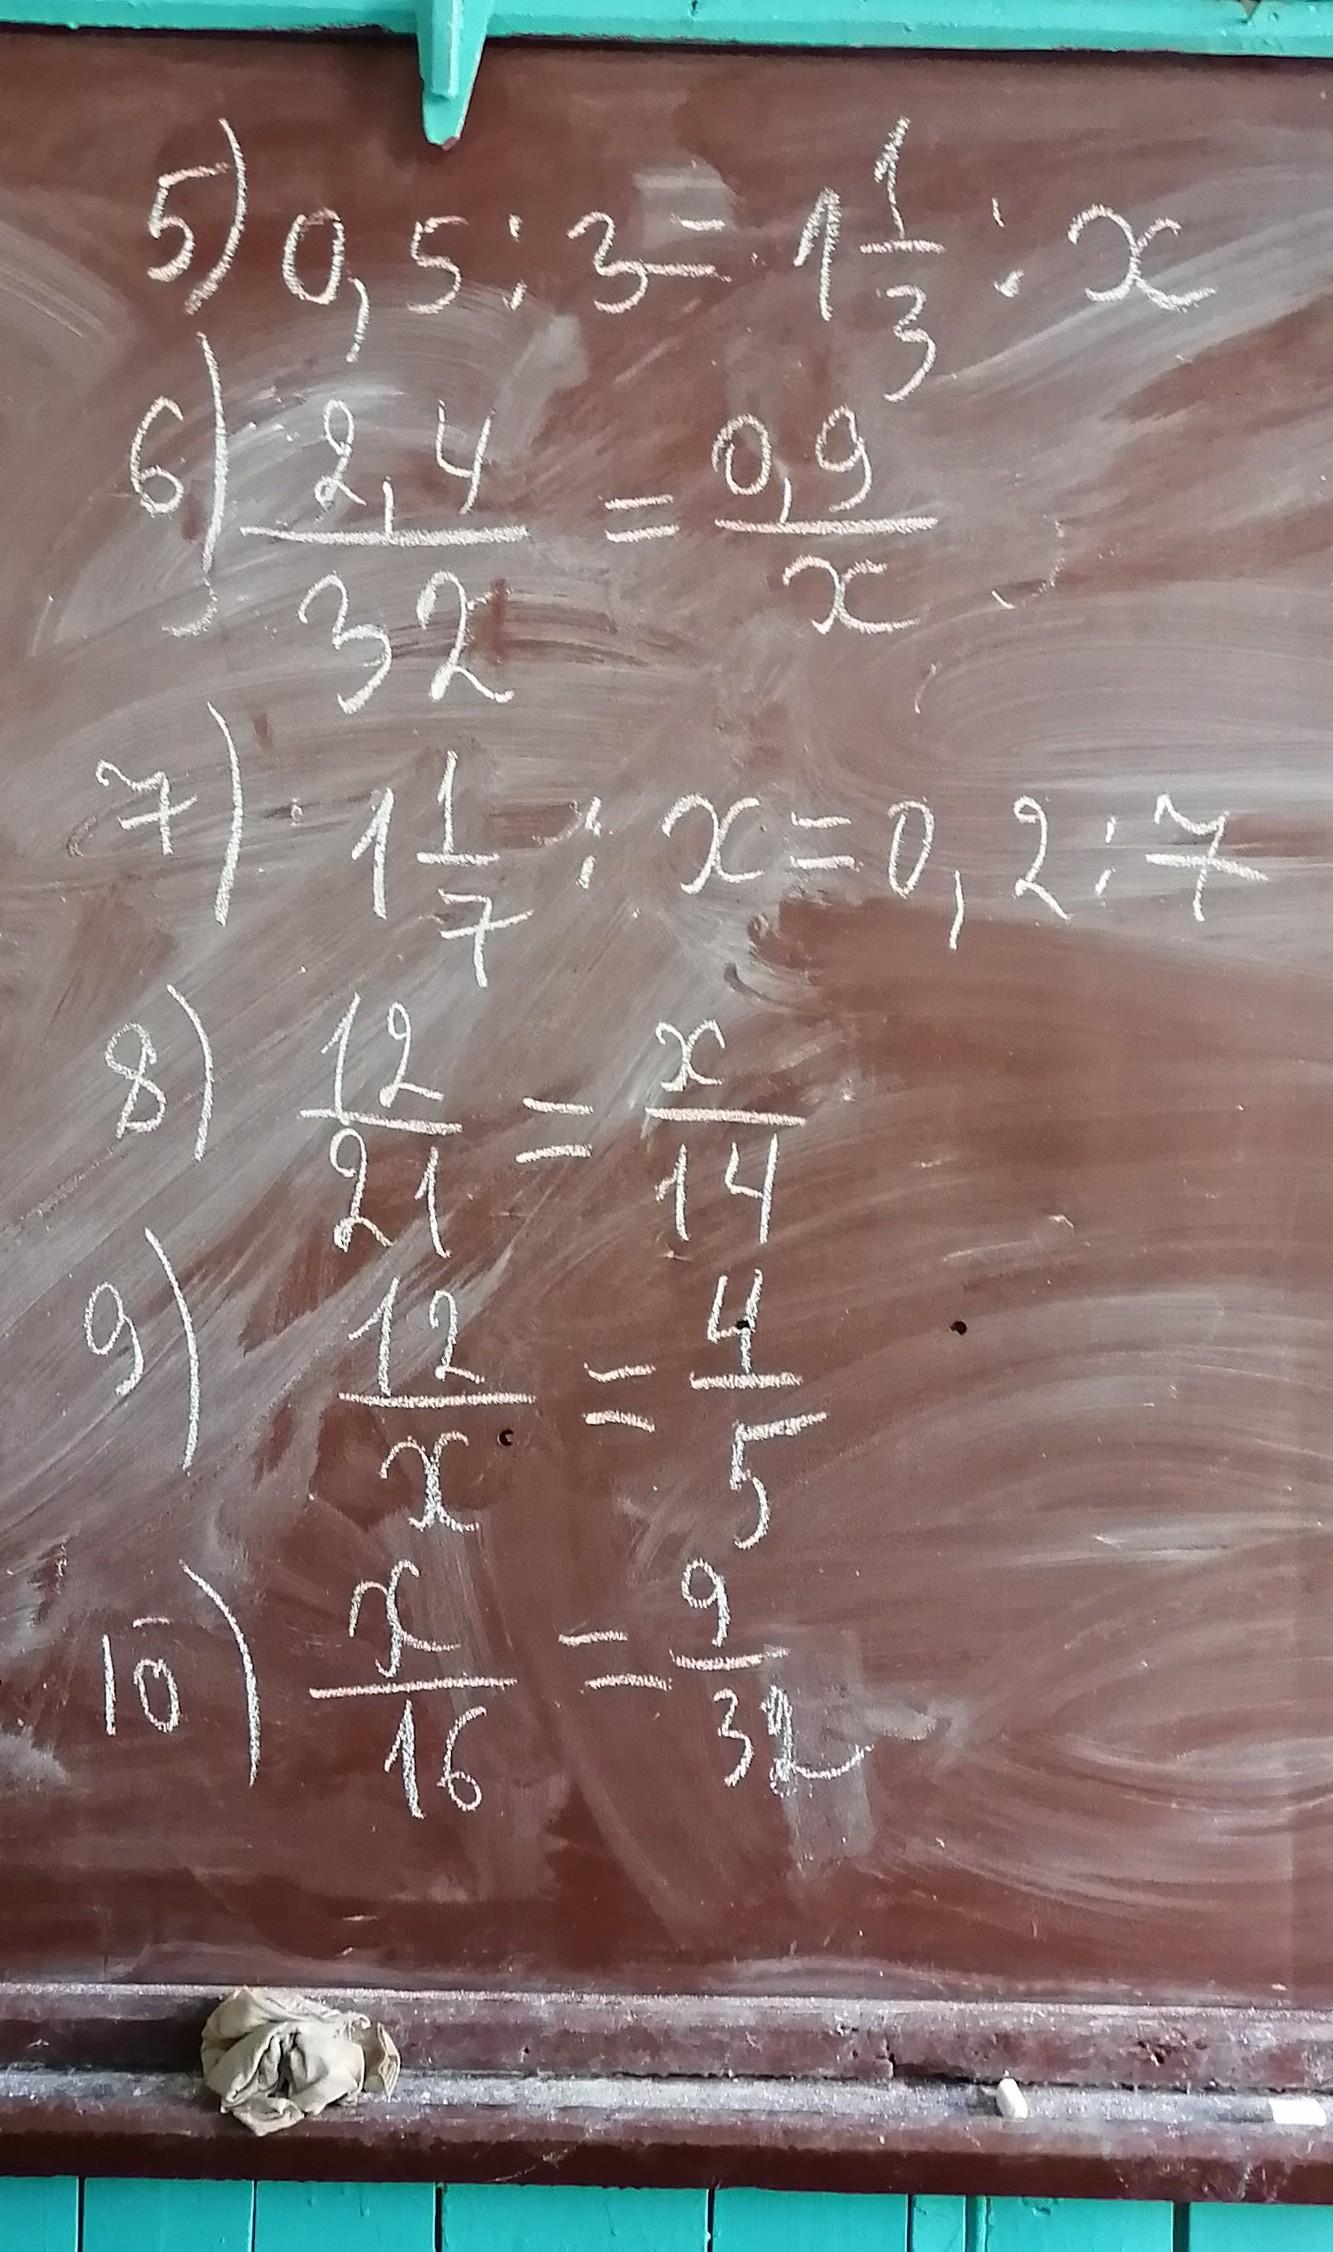 5) 0,5 : 3 = 1 1/3 : x
6) 2,4/32 = 0,9/x
7) 1 1/7 : x = 0,2 : 7
8) 12/21 = x/14
9) 12/x = 4/5
10) x/16 = 9/32